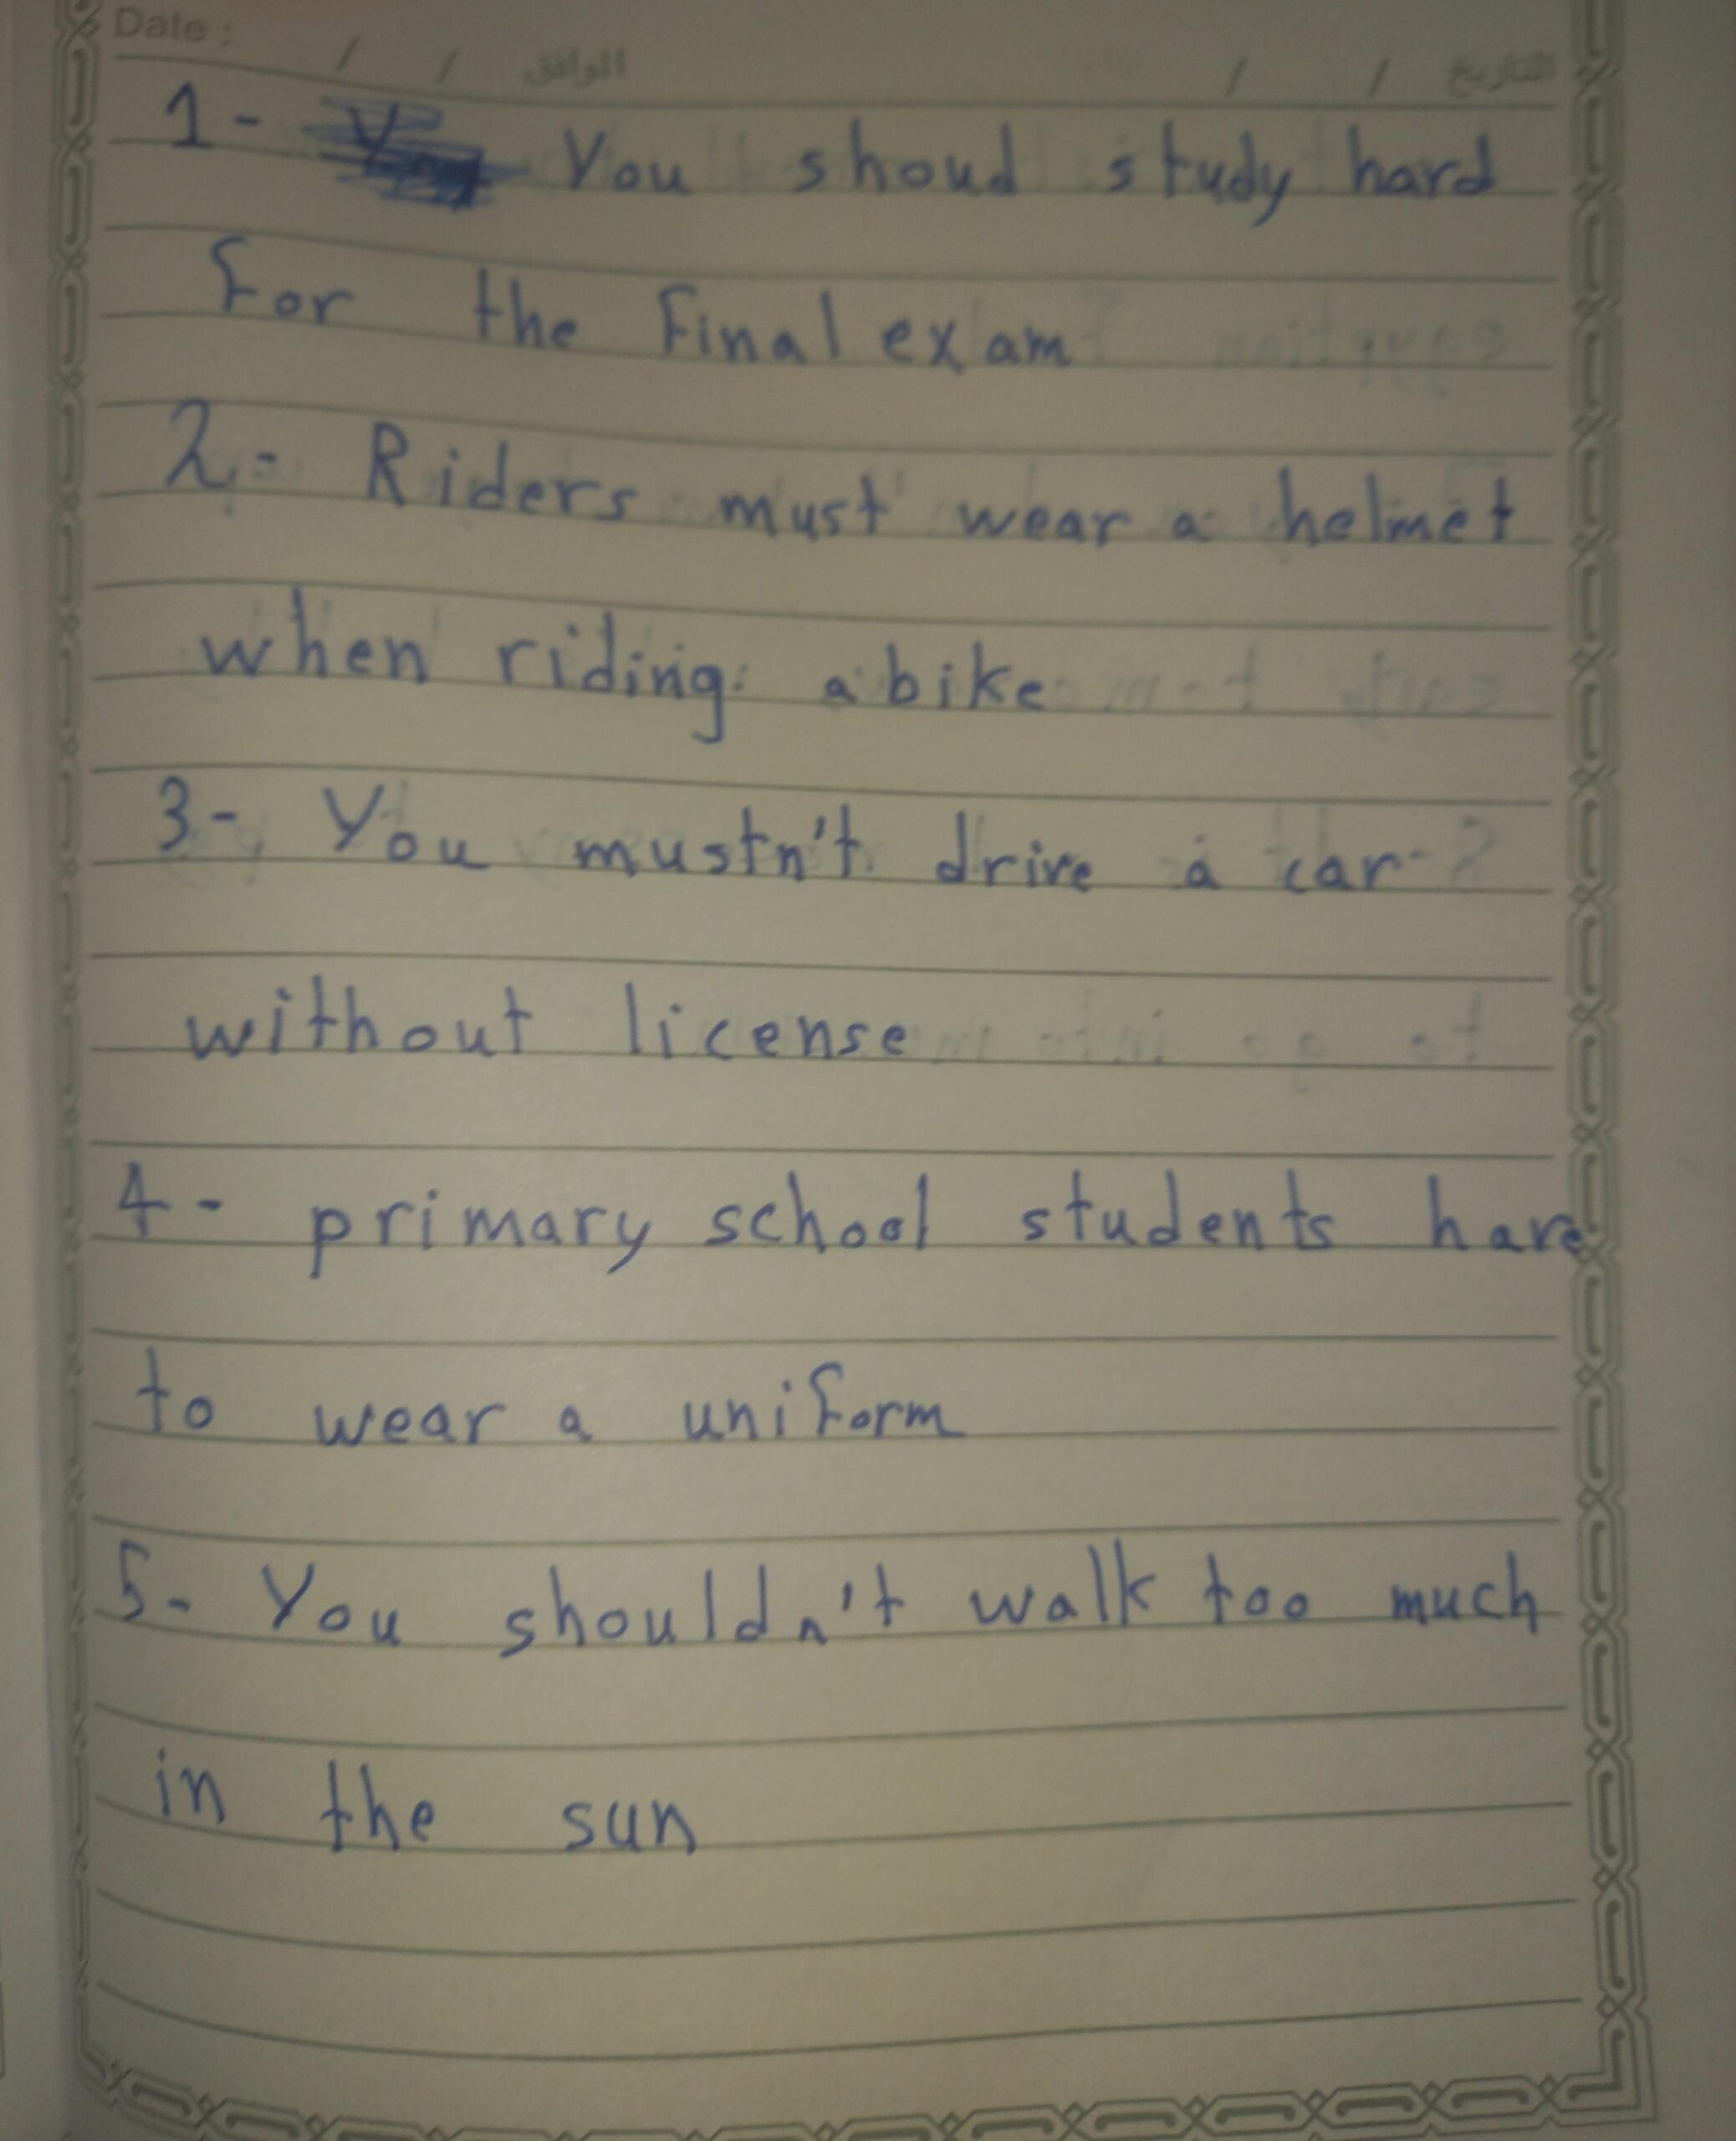 Date : / / الموافق / / التاريخ
1- You shoud study hard
for the final exam
2- Riders must wear a helmet
when riding a bike
3- You mustn't drive a car
without license
4- primary school students have
to wear a uniform
5- You shouldn't walk too much
in the sun